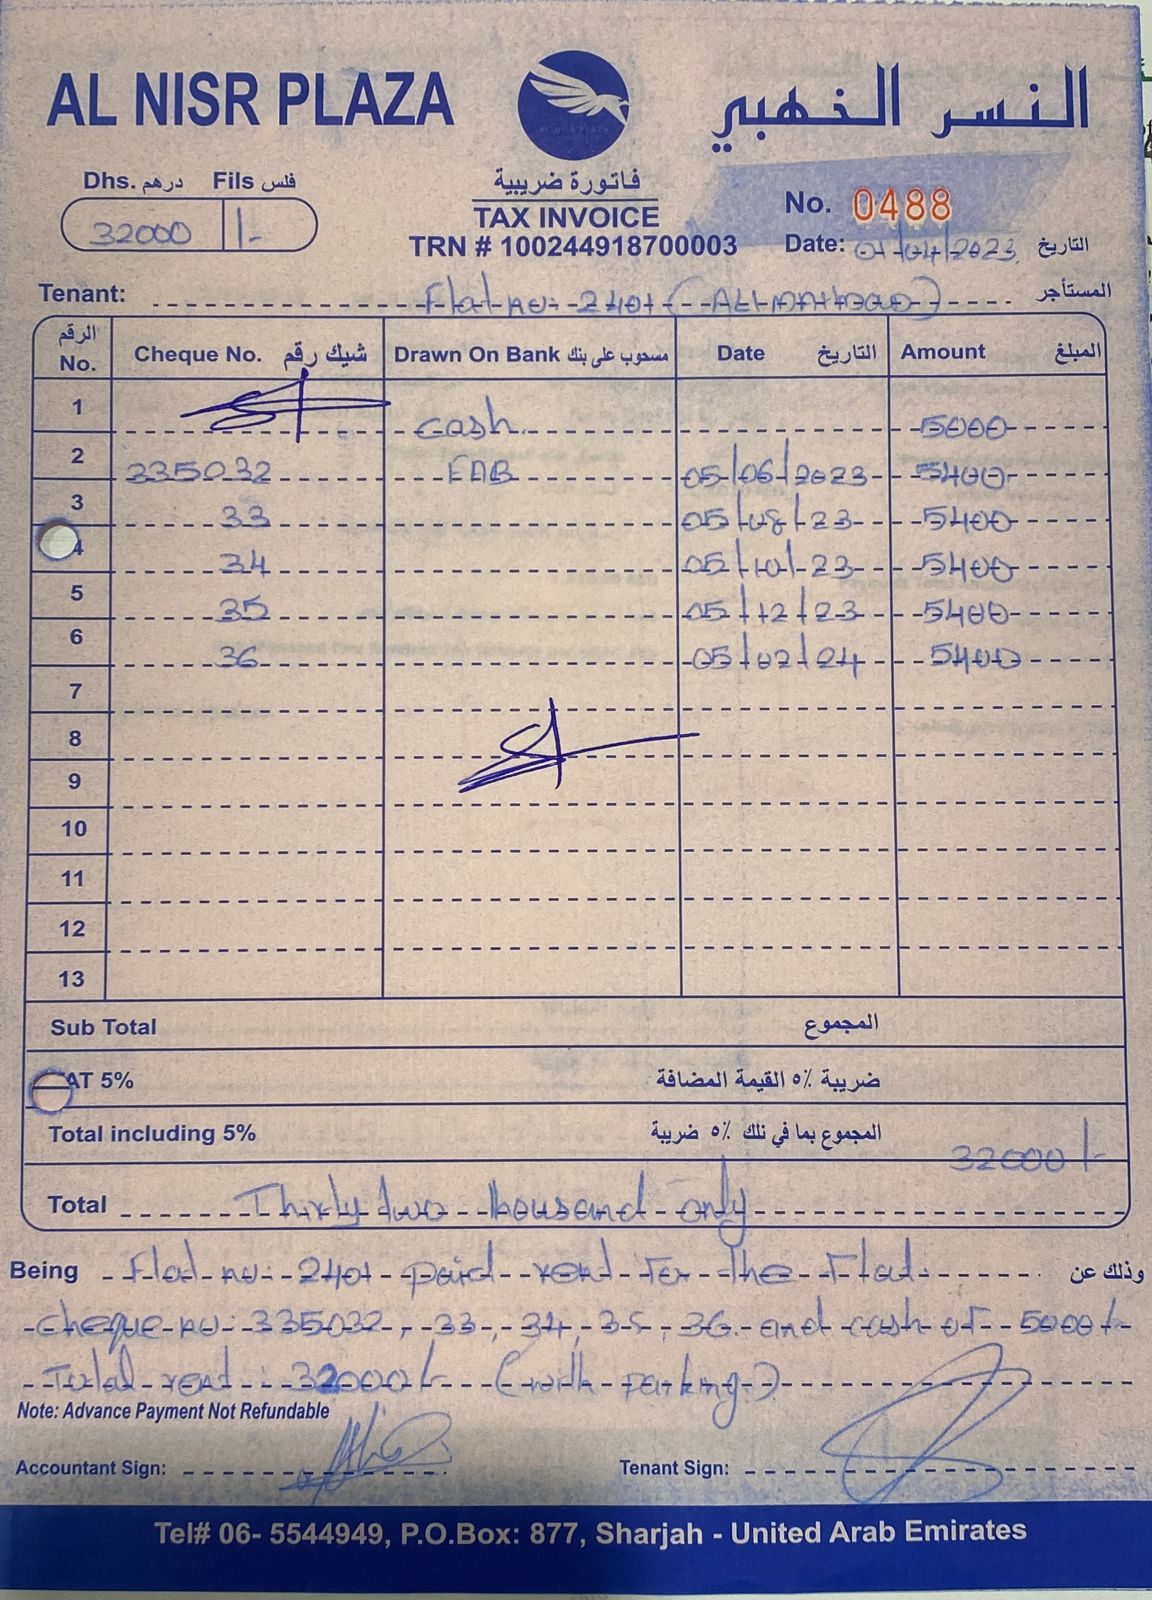 AL NISR PLAZA النسر الذهبي
Dhs. درهم Fils فلس
32000 /-
فاتورة ضريبية
TAX INVOICE
TRN # 100244918700003
No. 0488
Date: 01/04/2023 التاريخ
Tenant: Flat no 2401 (ALI MAHMOUD) المستأجر
الرقم No. Cheque No. شيك رقم Drawn On Bank مسحوب على بنك Date التاريخ Amount المبلغ
1 cash 5000
2 335032 FAB 05/06/2023 5400
3 33 05/08/23 5400
4 34 05/10/23 5400
5 35 05/12/23 5400
6 36 05/02/24 5400
7
8
9
10
11
12
13
Sub Total المجموع
AT 5% ضريبة ٥٪ القيمة المضافة
Total including 5% المجموع بما في ذلك ٥٪ ضريبة 32000/-
Total Thirty two thousand only
Being Flat no: 2401 paid rent for the Flat. وذلك عن
cheque no 335032, 33, 34, 35, 36. and cash of 5000/-
Total rent: 32000/- (with parking)
Note: Advance Payment Not Refundable
Accountant Sign: Tenant Sign:
Tel# 06- 5544949, P.O.Box: 877, Sharjah - United Arab Emirates